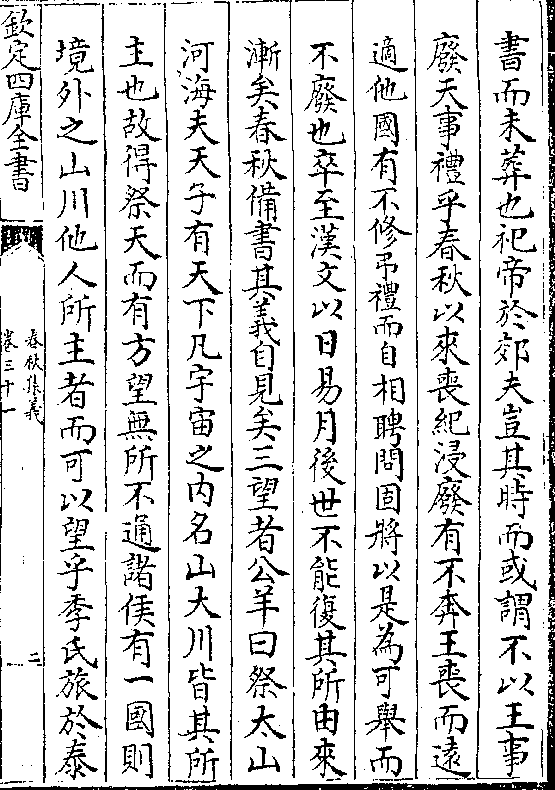 書而未葬也祀帝於郊夫豈其時而或謂不以王事
廢天事禮乎春秋以來喪紀浸廢有不奔王喪而遠
適他國有不修弔禮而自相聘問固將以是為可舉而
不廢也卒至漢文以日易月後世不能復其所由來
漸矣春秋備書其義自見矣三望者公羊曰祭太山
河海夫天子有天下凡宇宙之内名山大川皆其所
主也故得祭天而有方望無所不通諸侯有一國則
境外之山川他人所主者而可以望乎季氏旅於泰
欽定四庫全書
春秋集義
卷三十一
二